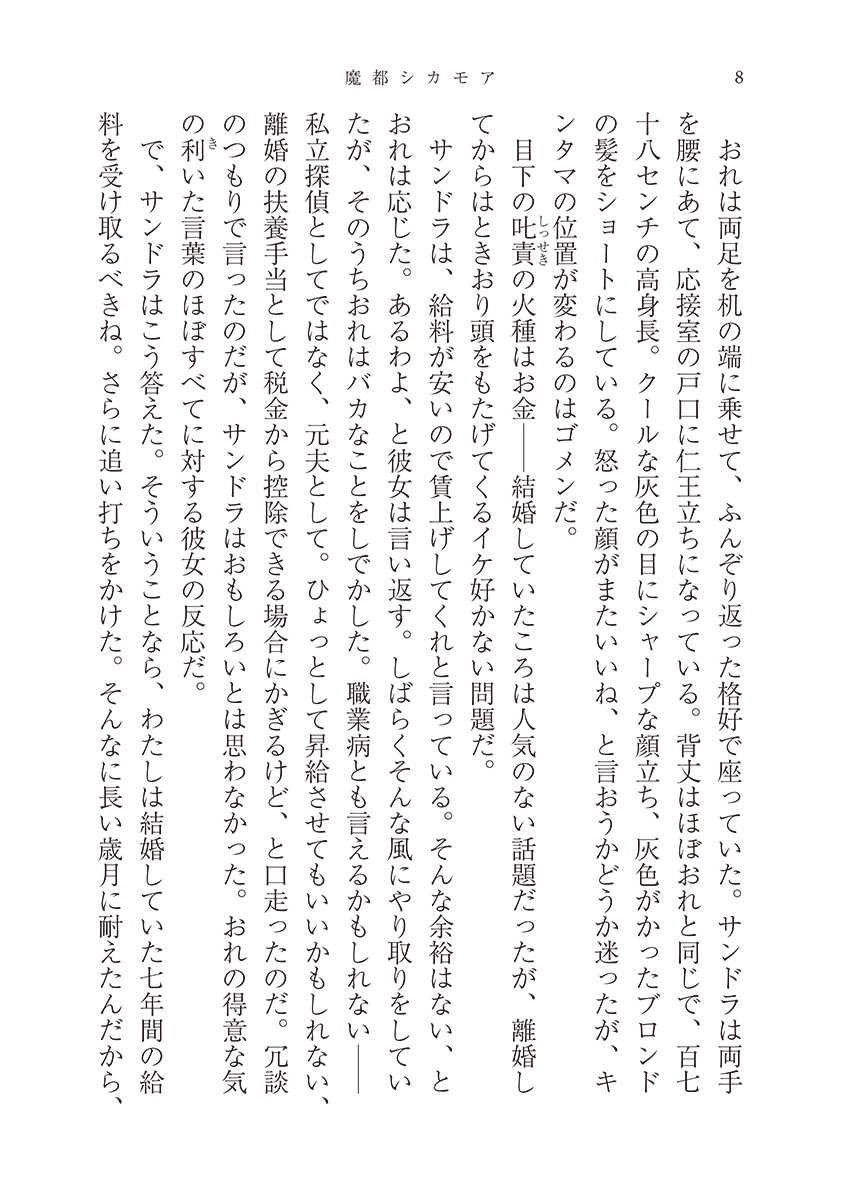 魔都シカモア
8
おれは両足を机の端に乗せて、ふんぞり返った格好で座っていた。サンドラは両手
を腰にあて、応接室の戸口に仁王立ちになっている。背丈はほぼおれと同じで、百七
十八センチの高身長。クールな灰色の目にシャープな顔立ち、灰色がかったブロンド
の髪をショートにしている。怒った顔がまたいいね、と言おうかどうか迷ったが、キ
ンタマの位置が変わるのはゴメンだ。
目下の叱責の火種はお金――結婚していたころは人気のない話題だったが、離婚し
しっせき
てからはときおり頭をもたげてくるイケ好かない問題だ。
サンドラは、給料が安いので賃上げしてくれと言っている。そんな余裕はない、と
おれは応じた。あるわよ、と彼女は言い返す。しばらくそんな風にやり取りをしてい
たが、そのうちおれはバカなことをしでかした。職業病とも言えるかもしれない――
私立探偵としてではなく、元夫として。ひょっとして昇給させてもいいかもしれない、
離婚の扶養手当として税金から控除できる場合にかぎるけど、と口走ったのだ。冗談
のつもりで言ったのだが、サンドラはおもしろいとは思わなかった。おれの得意な気
の利いた言葉のほぼすべてに対する彼女の反応だ。
き
で、サンドラはこう答えた。そういうことなら、わたしは結婚していた七年間の給
料を受け取るべきね。さらに追い打ちをかけた。そんなに長い歳月に耐えたんだから、